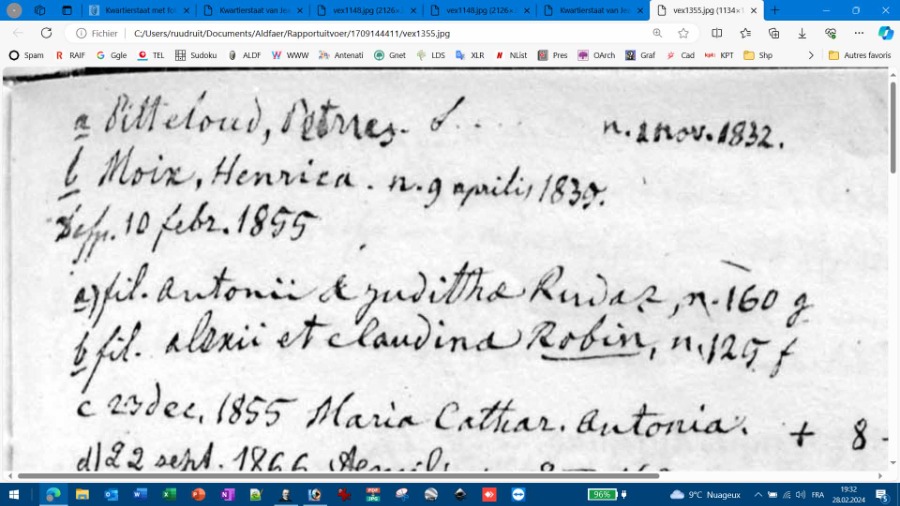 Kwartierstaat met fot
Kwartierstaat van Jea
vex1148.jpg (2126×
vex1148.jpg (2126×
Kwartierstaat van Jea
vex1355.jpg (1134×1
Fichier C:/Users/ruudruit/Documents/Aldfaer/Rapportuitvoer/1709144411/vex1355.jpg
Spam RAIF Ggle TEL Sudoku ALDF WWW Antenati Gnet LDS XLR NList Pres OArch Graf Cad KPT Shp Autres favoris
a Pitteloud, Petrus. n. 2 nov. 1832.
b Moix, Henrica. n. 9 aprilis 1835.
10 febr. 1855
a) fil. Antonii & Judithæ Rudaz, n. 160 g
b fil. Alexii et Claudina Robin, n. 125 f
c 23 dec. 1855 Maria Cathar. Antonia. + 8
d) 22 sept. 1866
96%
9°C Nuageux
FRA
19:32
28.02.2024